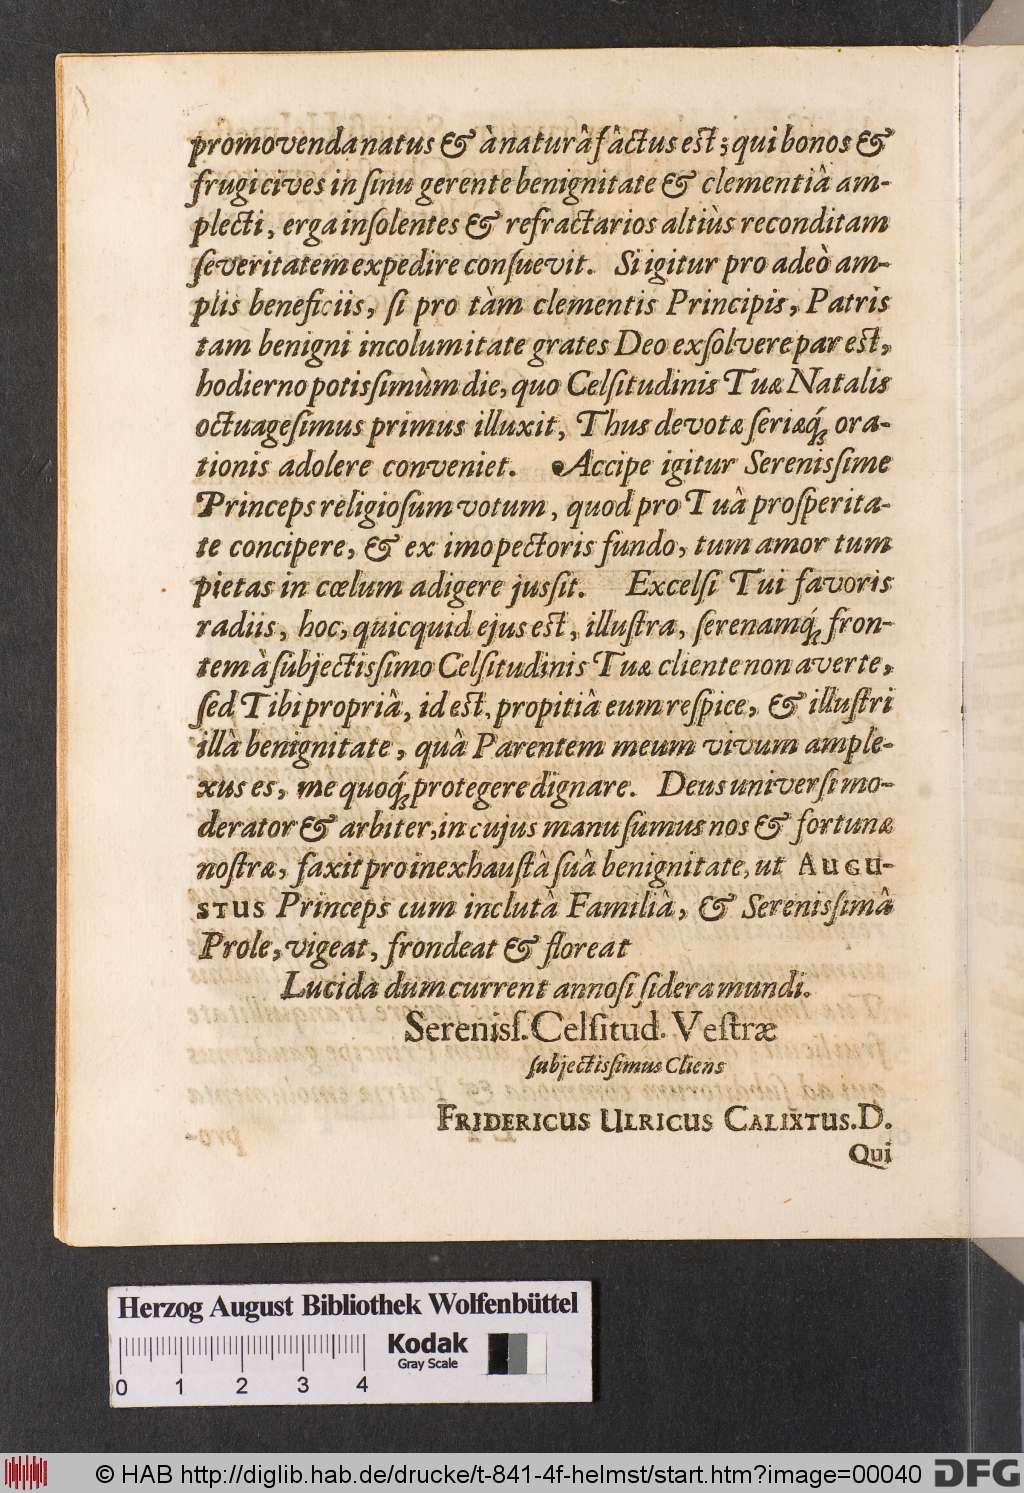 promovenda natus & à naturâ fâctus est; qui bonos &
frugi cives in ſinu gerente benignitate & clementiâ am-
plecti, erga inſolentes & refractarios altiùs reconditam
ſeveritatem expedire conſuevit. Si igitur pro adeò am-
plis beneficiis, ſi pro tàm clementis Principis, Patris
tam benigni incolumitate grates Deo exſolvere par est,
hodierno potisſimùm die, quo Celſitudinis Tuæ Natalis
octuageſimus primus illuxit, Thus devotæ ſeriæq́; ora-
tionis adolere conveniet. Accipe igitur Serenisſime
Princeps religioſum votum, quod pro Tuâ proſperita-
te concipere, & ex imo pectoris fundo, tum amor tum
pietas in cœlum adigere jusſit. Excelſi Tui favoris
radiis, hoc, quicquid ejus est, illuſtra, ſerenamq́; fron-
tem à ſubjectisſimo Celſitudinis Tuæ cliente non averte,
ſed Tibi propriâ, id est, propitiâ eum reſpice, & illuſtri
illâ benignitate, quâ Parentem meum vivum ample-
xus es, me quoq́; protegere dignare. Deus univerſi mo-
derator & arbiter, in cujus manu ſumus nos & fortunæ
noſtræ, faxit pro inexhauſtâ ſuâ benignitate, ut AUGU-
STUS Princeps cum inclutâ Familiâ, & Serenisſimâ
Prole, vigeat, frondeat & floreat
Lucida dum current annoſi ſidera mundi.
Serenisſ. Celſitud. Veſtræ
ſubjectisſimus Cliens
FRIDERICUS ULRICUS CALIXTUS. D.
Qui
pro-
Herzog August Bibliothek Wolfenbüttel
Kodak
Gray Scale
0 1 2 3 4
© HAB http://diglib.hab.de/drucke/t-841-4f-helmst/start.htm?image=00040
DFG